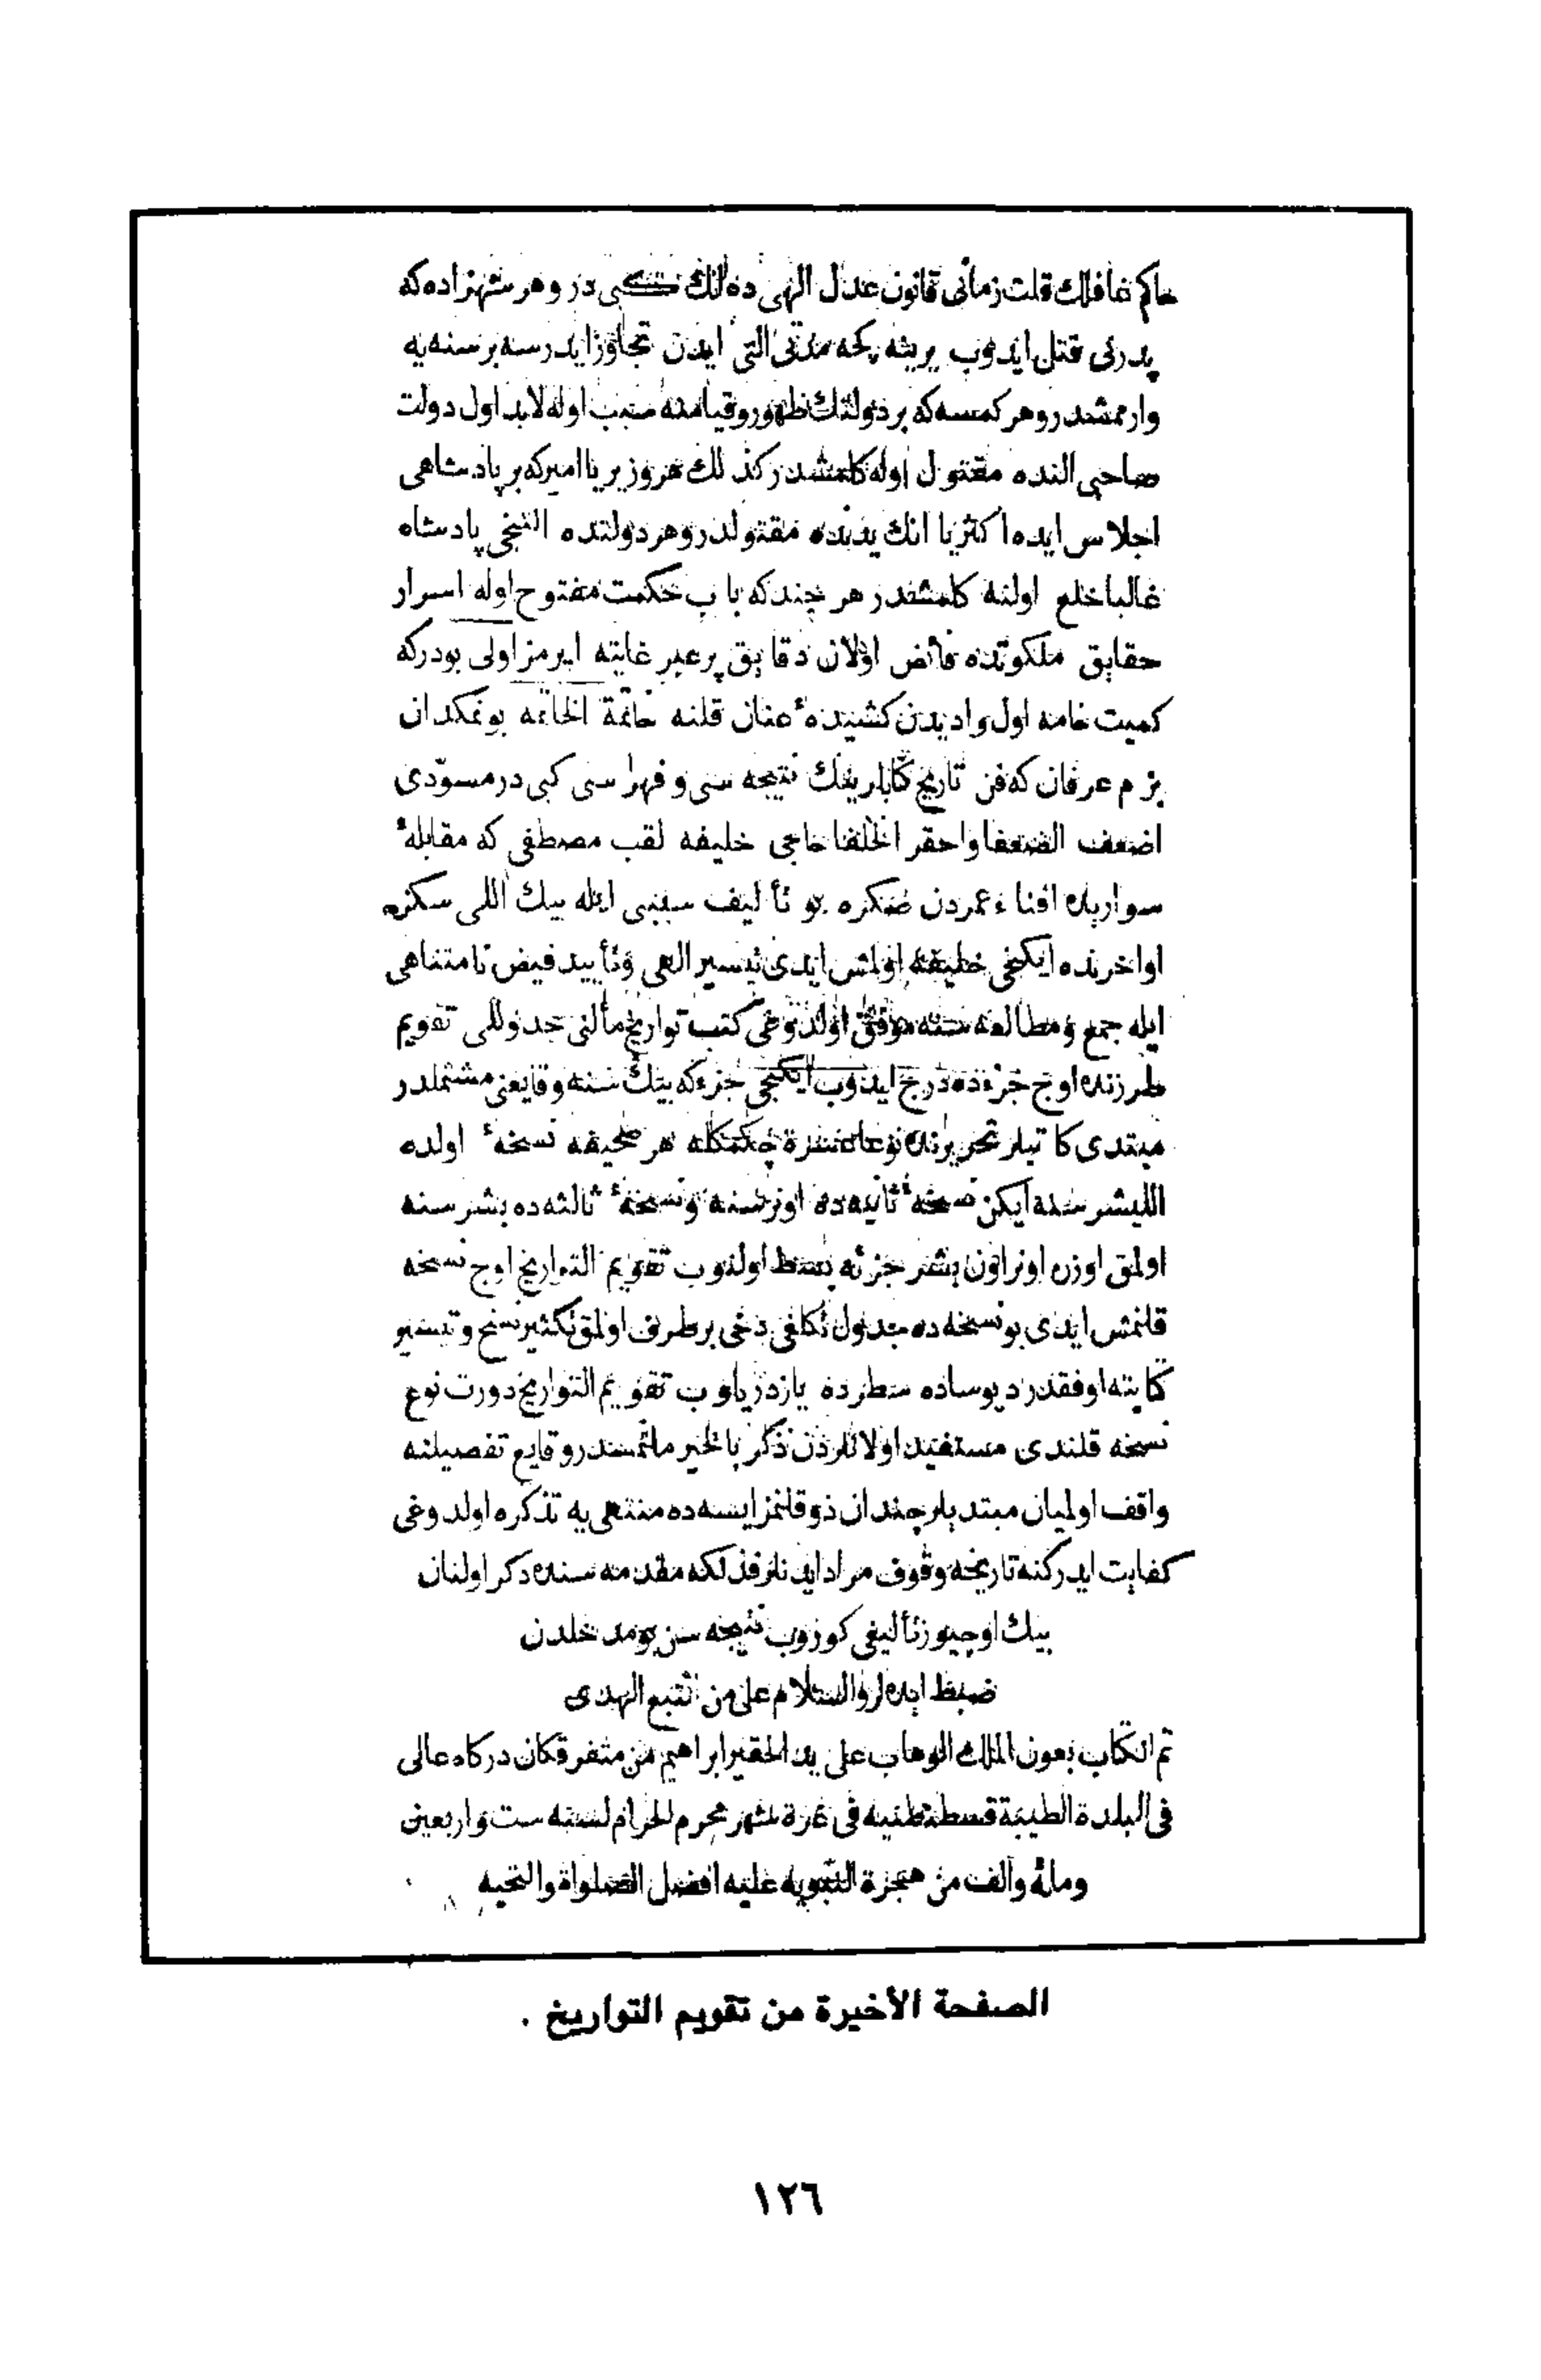 حاكم غافلك قلت زمانى قانون عدل الهى ده انك در وهر شهزاده كه
پدرنى قتل ايدوب يرينه بكچه مدتى التى ايدن تجاوز ايدرسه بر سنه يه
وارممشدر وهر كمسه كه بر دولتك ظهور وقيامنه سبب اوله لابد اول دولت
صاحبى النده مقتول اوله كلمشدر كذلك هر وزير يا امير كه بر پادشاهى
اجلاس ايده اكثريا انك يدنده مقتولدر وهر دولتده التنجى پادشاه
غالبا خلع اولنه كلمشدر هر چند كه باب حكمت مفتوح اوله اسرار
حقايق ملكوتدن فائض اولان دقايق پر عبر غايته ايرمز اولى بودركه
كميت خامه اول واديدن كشيده ٔ عنان قلنه خاتمة الخاتمه بو نمكدان
بزم عرفان كه فن تاريخ كتابلرينك نتيجه سى وفهراسى كبى در مسوّدى
اضعف الضعفا واحقر الخلفا حاجى خليفه لقب مصطفى كه مقابله ٔ
سواريده افناء عمردن صكره بو تأليف سببى ايله بيك اللى سكز
اواخرنده ايكنجى خليفه اولمش ايدى تيسير الهى وتأييد فيض نامتناهى
ايله جمع ومطالعه سنه موفق اولدوغى كتب تواريخ مألنى جدوللى تقويم
طرزنده اوج جزءده درج ايدوب ايكنجى جزء كه بيك سنه وقايعنى مشتملدر
مبتدى كاتبلر تحريرنده نوعا عسرة چكمكله هر صحيفه نسخه ٔ اولده
اللیشر سنه ايكن نسخه ٔ ثانيه ده اونر سنه ونسخه ٔ ثالثه ده بشر سنه
اولمق اوزره اونر اون بشر جزئه بسط اولنوب تقويم التواريخ اوج نسخه
قلنمش ايدى بو نسخه ده جدول تكلفى دخى بر طرف اولمق تكثير نسخ وتيسير
كتابته اوفقدر ديو ساده سطرده يازدريلوب تقويم التواريخ دورت نوع
نسخه قلندى مستفيد اولانلردن ذكر بالخير ملتمسدر وقايع تفصيلنه
واقف اولميان مبتديلر چندان ذوقلنمز ايسه ده منتهى يه تذكره اولدوغى
كفايت ايدر كنه تاريخه وقوف مراد ايدنلر فذلكه مقدمه سنده ذكر اولنان
بيك اوچيوز تأليفى كوروب نتيجه سن بو مدخلدن
ضبط ايده لر والسلام على من اتبع الهدى
تم الكتاب بعون الملك الوهاب على يد الحقير ابراهيم من متفرقكان دركاه عالى
فى البلدة الطيبة قسطنطنيه فى غرة شهر محرم الحرام لسنه ست واربعين
ومائة والف من هجرة النبويه عليه افضل الصلواة والتحيه
الصفحة الأخيرة من تقويم التواريخ .
١٢٦